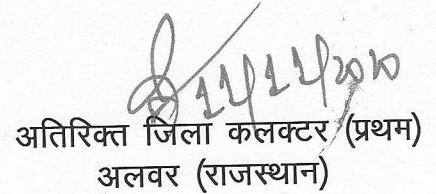 11/11/2020
अतिरिक्त जिला कलक्टर (प्रथम)
अलवर (राजस्थान)